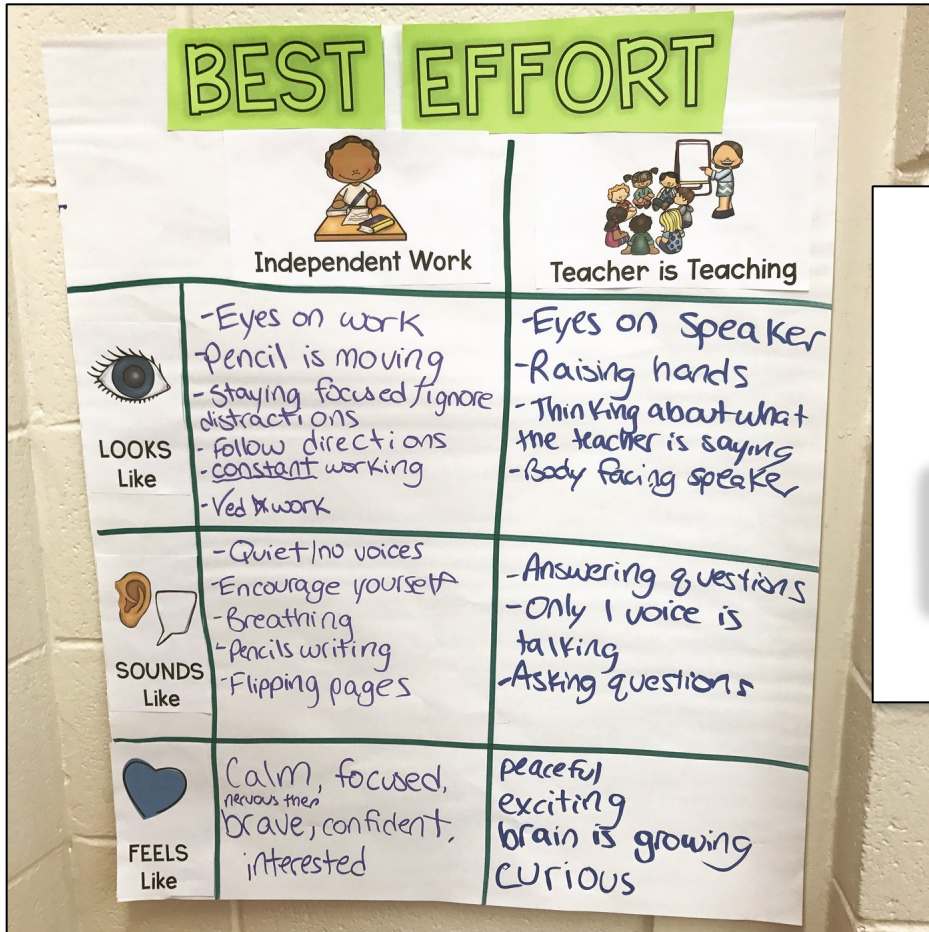 BEST EFFORT
Independent Work
Teacher is Teaching
LOOKS
Like
-Eyes on work
-Pencil is moving
-Staying focused/ignore
distractions
-follow directions
-constant working
-work
-Eyes on speaker
-Raising hands
-Thinking about what
the teacher is saying
-Body facing speaker
SOUNDS
Like
-Quiet/no voices
-Encourage yourself
-Breathing
-Pencils writing
-Flipping pages
-Answering questions
-Only 1 voice is
talking
-Asking questions
FEELS
Like
Calm, focused,
nervous then
brave, confident,
interested
peaceful
exciting
brain is growing
curious